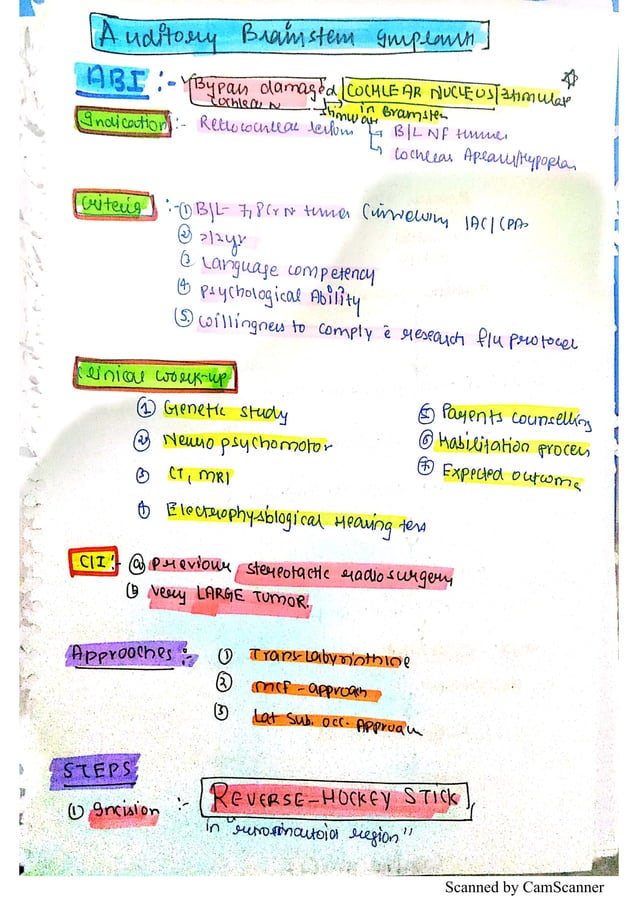 Auditory Brainstem Implant
ABI :- Bypass damaged COCHLEAR NUCLEUS stimulate
cochlear N stimulate in Brainstem
Indication :- Retrocochlear lesion B/L NF tumor
Cochlear Aplasia/Hypoplas
Criteria :- ① B/L 7, 8 Cr N tumor involving IAC/CPA
② >12yr
③ Language competency
④ Psychological Ability
⑤ Willingness to comply c̄ research f/u protocol
Clinical work-up
① Genetic study ⑤ Patients counselling
② Neuropsychomotor ⑥ Habilitation process
③ CT, MRI ⑦ Expected outcome
④ Electrophysiological Hearing test
C/I :- ⓐ Previous stereotactic radiosurgery
ⓑ very LARGE TUMOR.
Approaches :- ① Trans-Labyrinthine
② MCF-approach
③ Lat Sub. occ. Approach
STEPS
① Incision :- REVERSE-HOCKEY STICK
in "retromastoid region"
Scanned by CamScanner